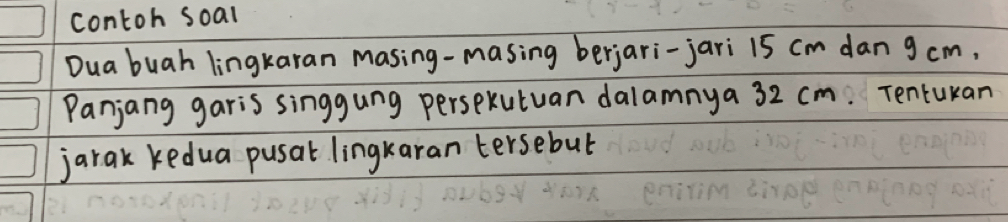 contoh soal
Dua buah lingkaran masing-masing berjari-jari 15 cm dan 9 cm.
Panjang garis singgung persekutuan dalamnya 32 cm. Tentukan
jarak kedua pusat lingkaran tersebut